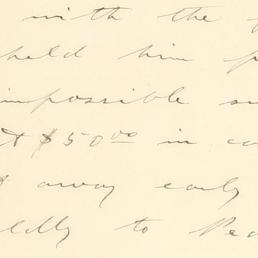 with the
held him
impossible
$50.00 in
away early
to